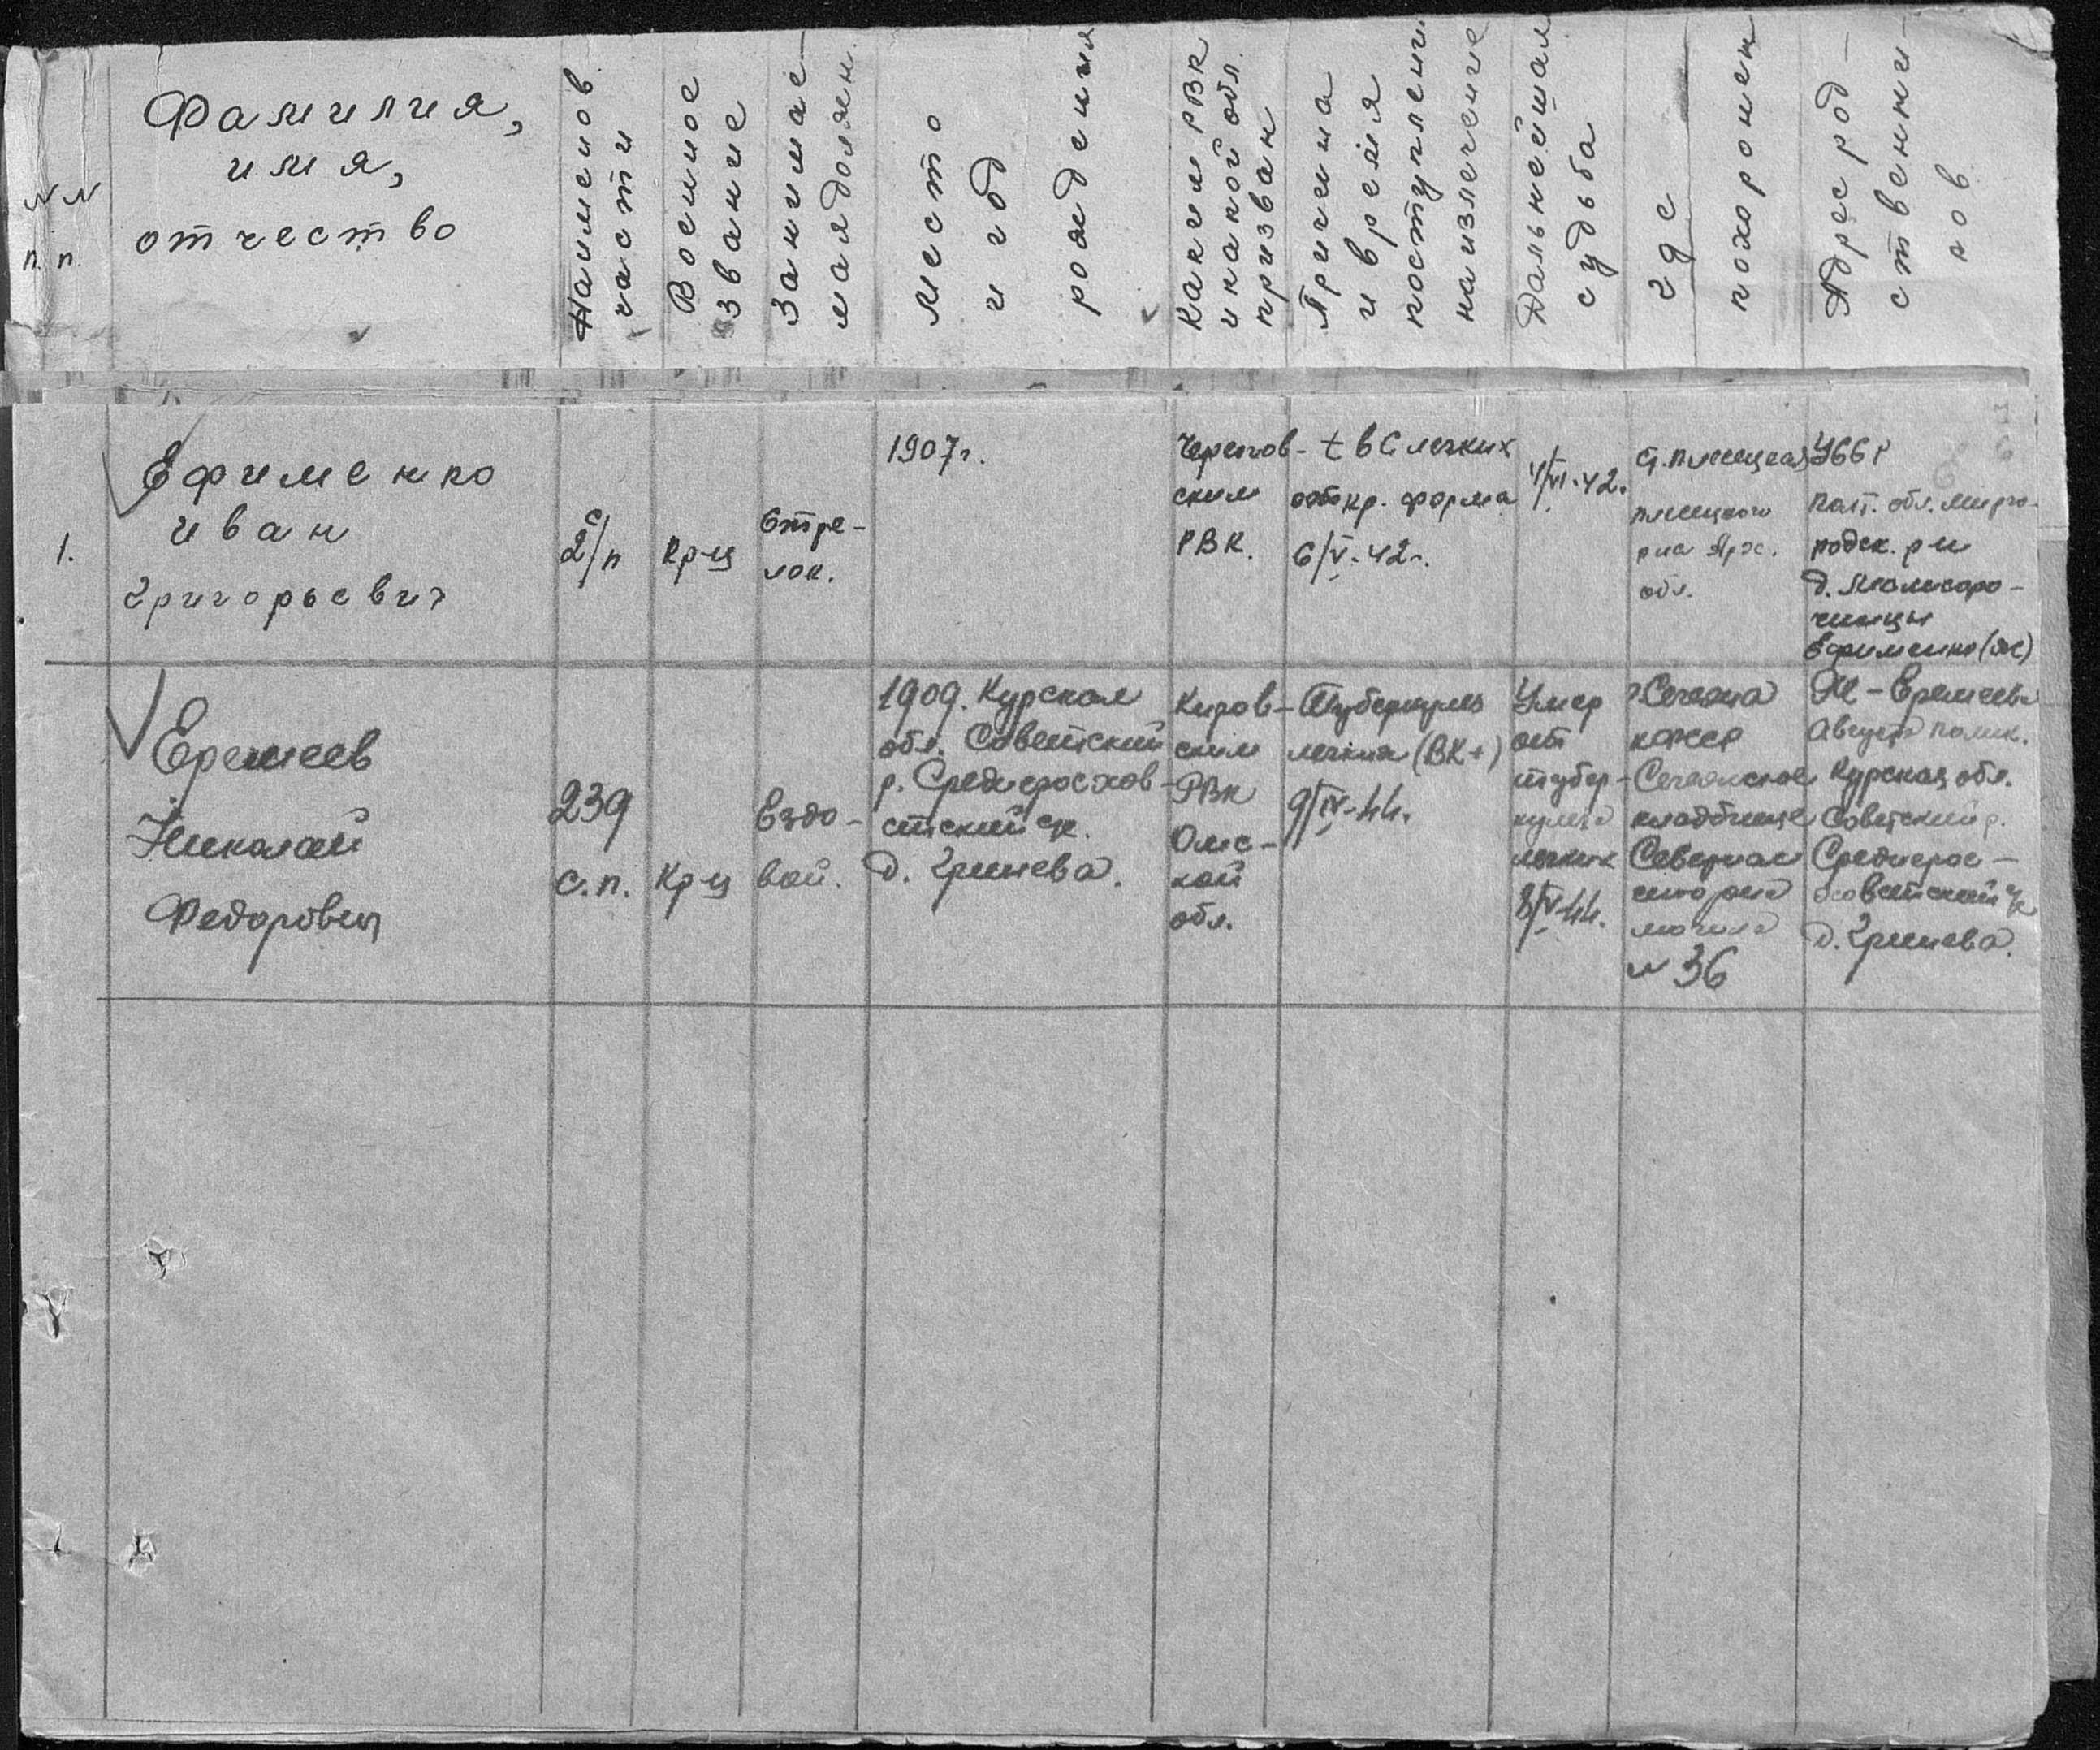 NN
п.п.
Фамилия,
имя,
отчество
Наименов
части
Военное
звание
Занимае-
мая должн.
Место
и год
рождения
Каким РВК
и какой обл.
призван
Причина
и время
поступлени
на излечение
Дальнейшая
судьба
где
похоронен
Адрес род-
ственни-
ков
1.
Ефименко
Иван
Григорьевич
2 с/п
Кр-ц
Стре-
лок.
1907г.
Черепов-
ским
РВК.
t в с легких
откр. форма
6/V-42г.
4/VI-42г.
Ст. Плесецкая
Плесецкого
р-на Арх.
обл.
УССР
Полт. обл. Мирго-
родск. р-н
Ефименко (ж)
Еремеев
Николай
Федорович
239
с.п.
Кр-ц
Ездо-
вой.
1909. Курская
обл. Советский
р. Среднеросхов-
етский с/с.
д. Гринева.
Киров-
ским
РВК
Омс-
кой
обл.
Туберкулез
легких (ВК+)
9/IV-44.
Умер
от
тубер-
кулеза
легких
8/V-44.
г. Сегежа
КФССР
Сегежское
кладбище
Северная
сторона
могила
N 36
Ж - Еремеева
Курская обл.
Советский р.
д. Гринева.